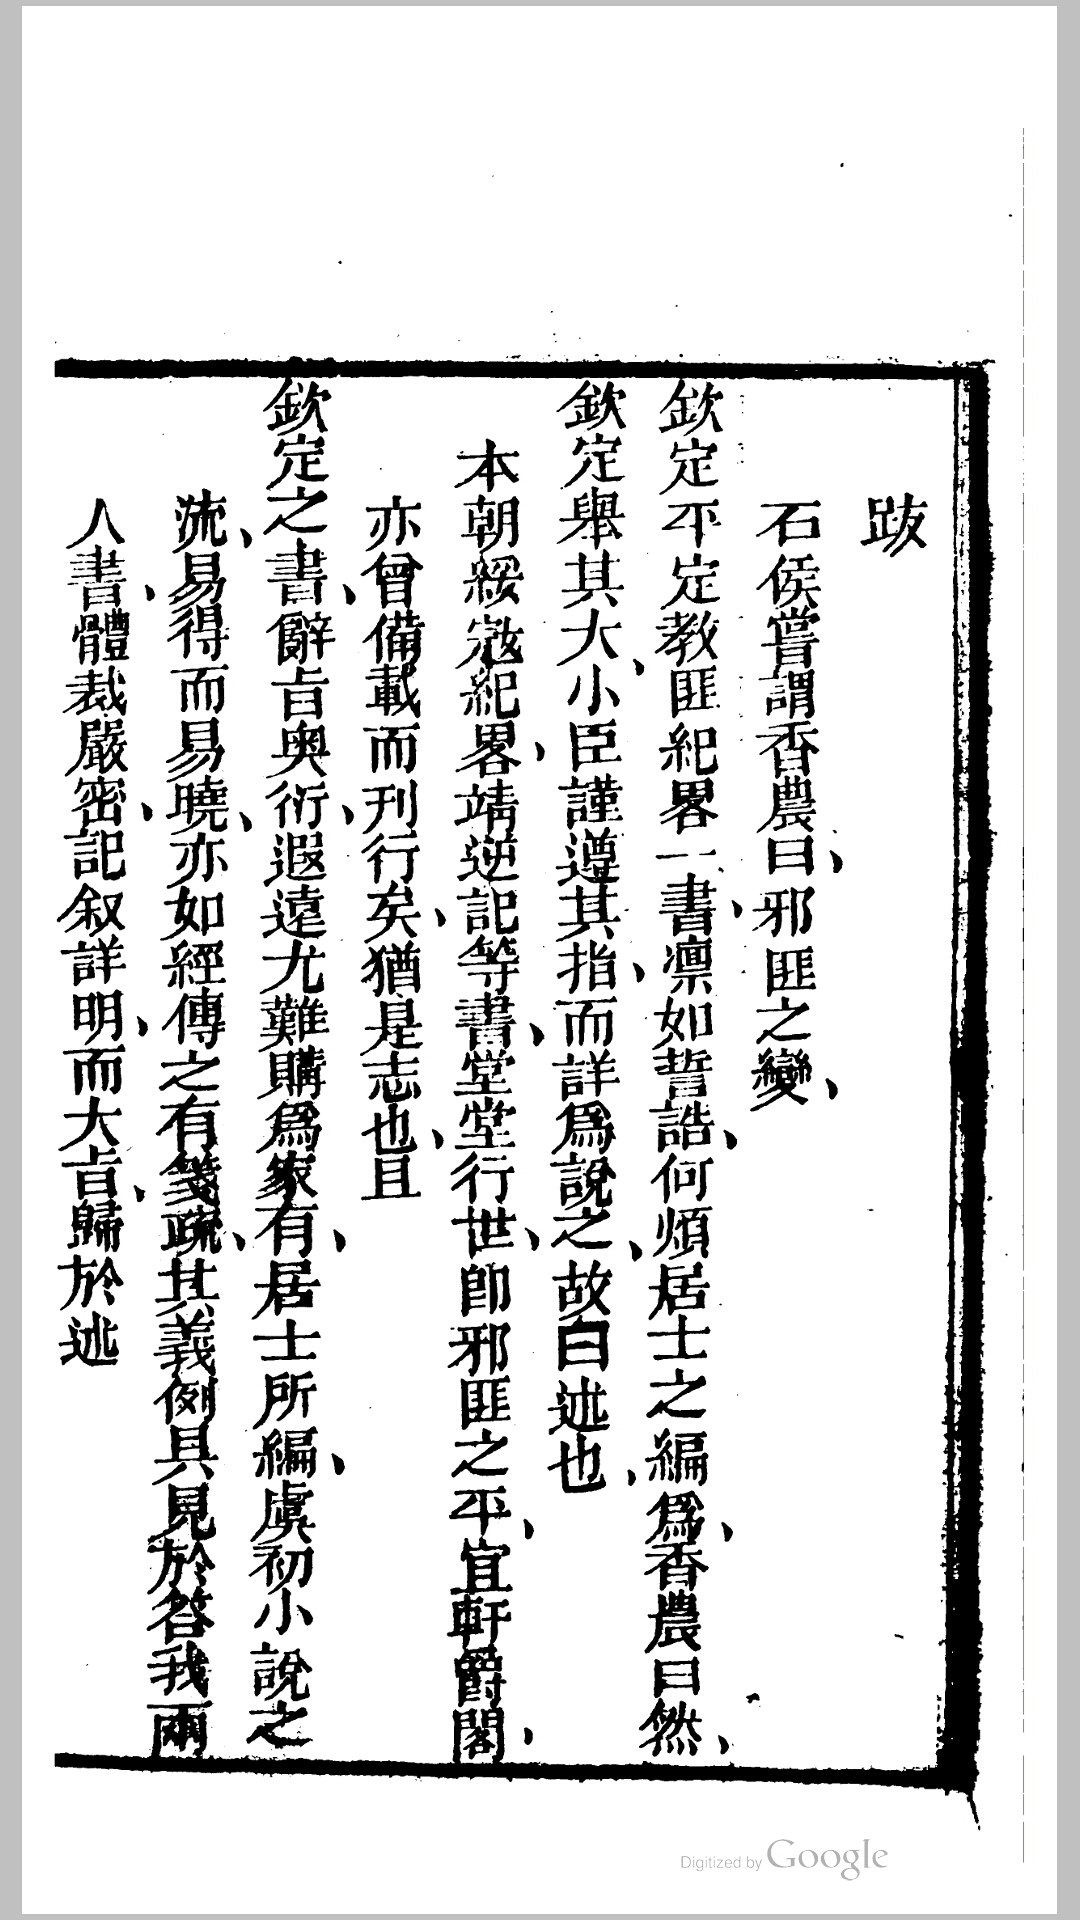 跋
石侯嘗謂香農曰、邪匪之變、
欽定平定教匪紀畧一書、凛如誓誥、何煩居士之編爲、香農曰然、
欽定舉其大、小臣謹遵其指、而詳爲說之、故曰述也、
本朝綏寇紀畧、靖逆記等書、堂堂行世、卽邪匪之平、宜軒爵閣、
亦曾備載而刊行矣、猶是志也、且
欽定之書、辭旨奥衍、遐遠尤難購、爲家有、居士所編、虞初小說之
流、易得而易曉、亦如經傳之有箋疏、其義例具見於答我兩
人書、體裁嚴密、記叙詳明、而大旨、歸於述
Digitized by Google